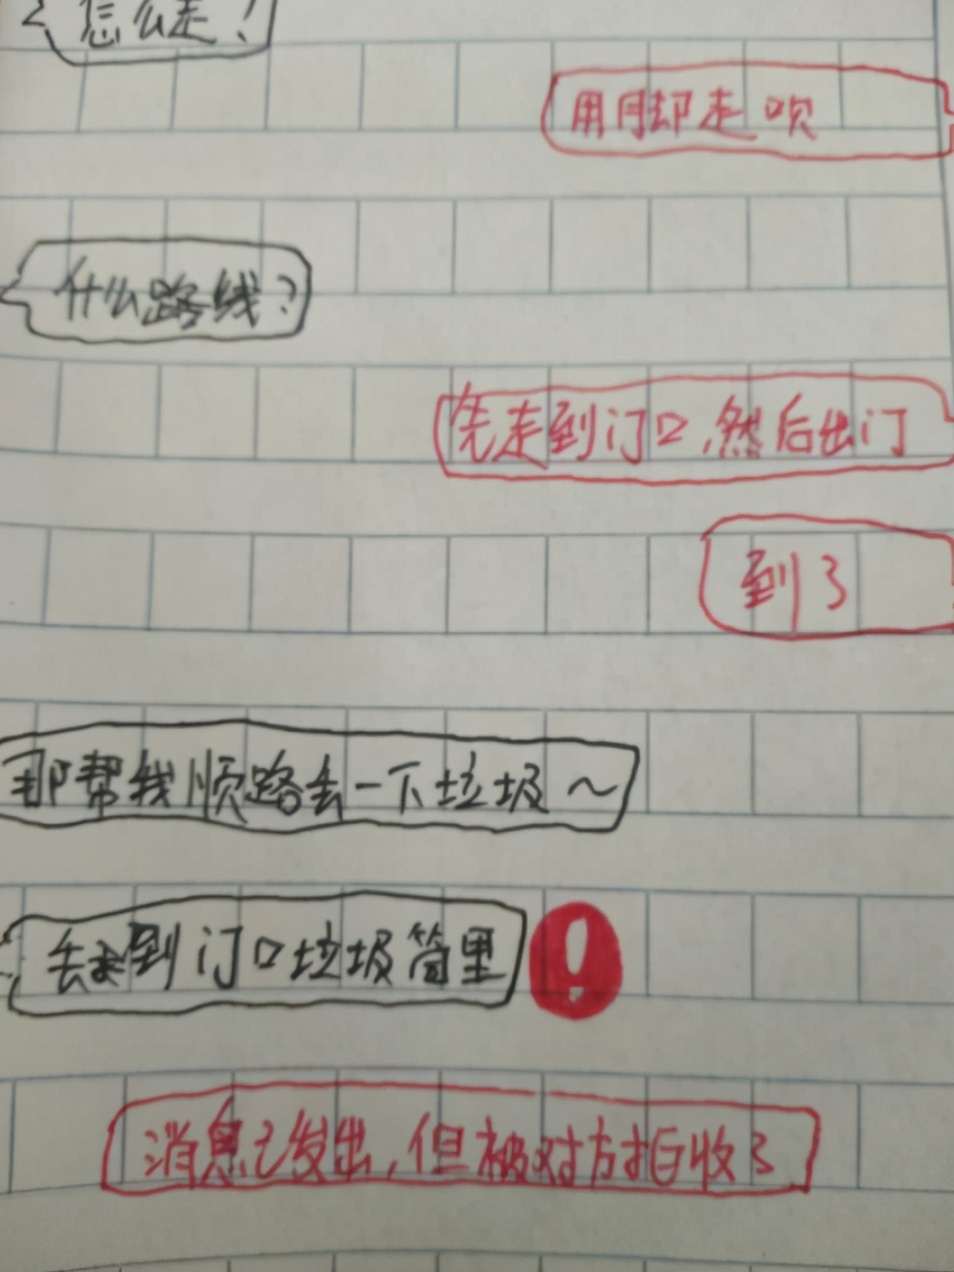 怎么走！
用脚走呗
什么路线？
先走到门口，然后出门
到了
那帮我顺路丢一下垃圾～
丢到门口垃圾筒里
！
消息已发出，但被对方拒收了